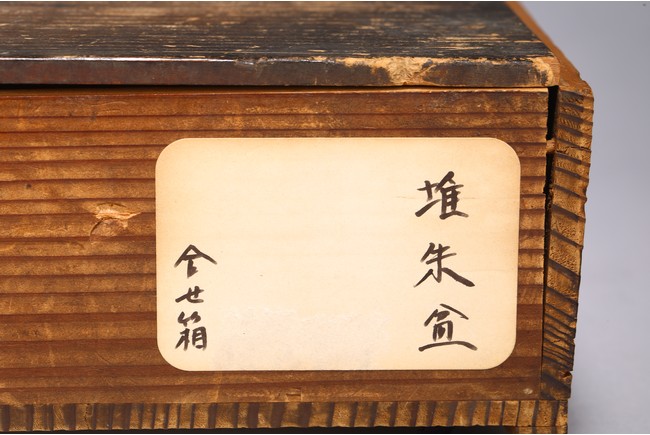 堆朱盆
合せ箱